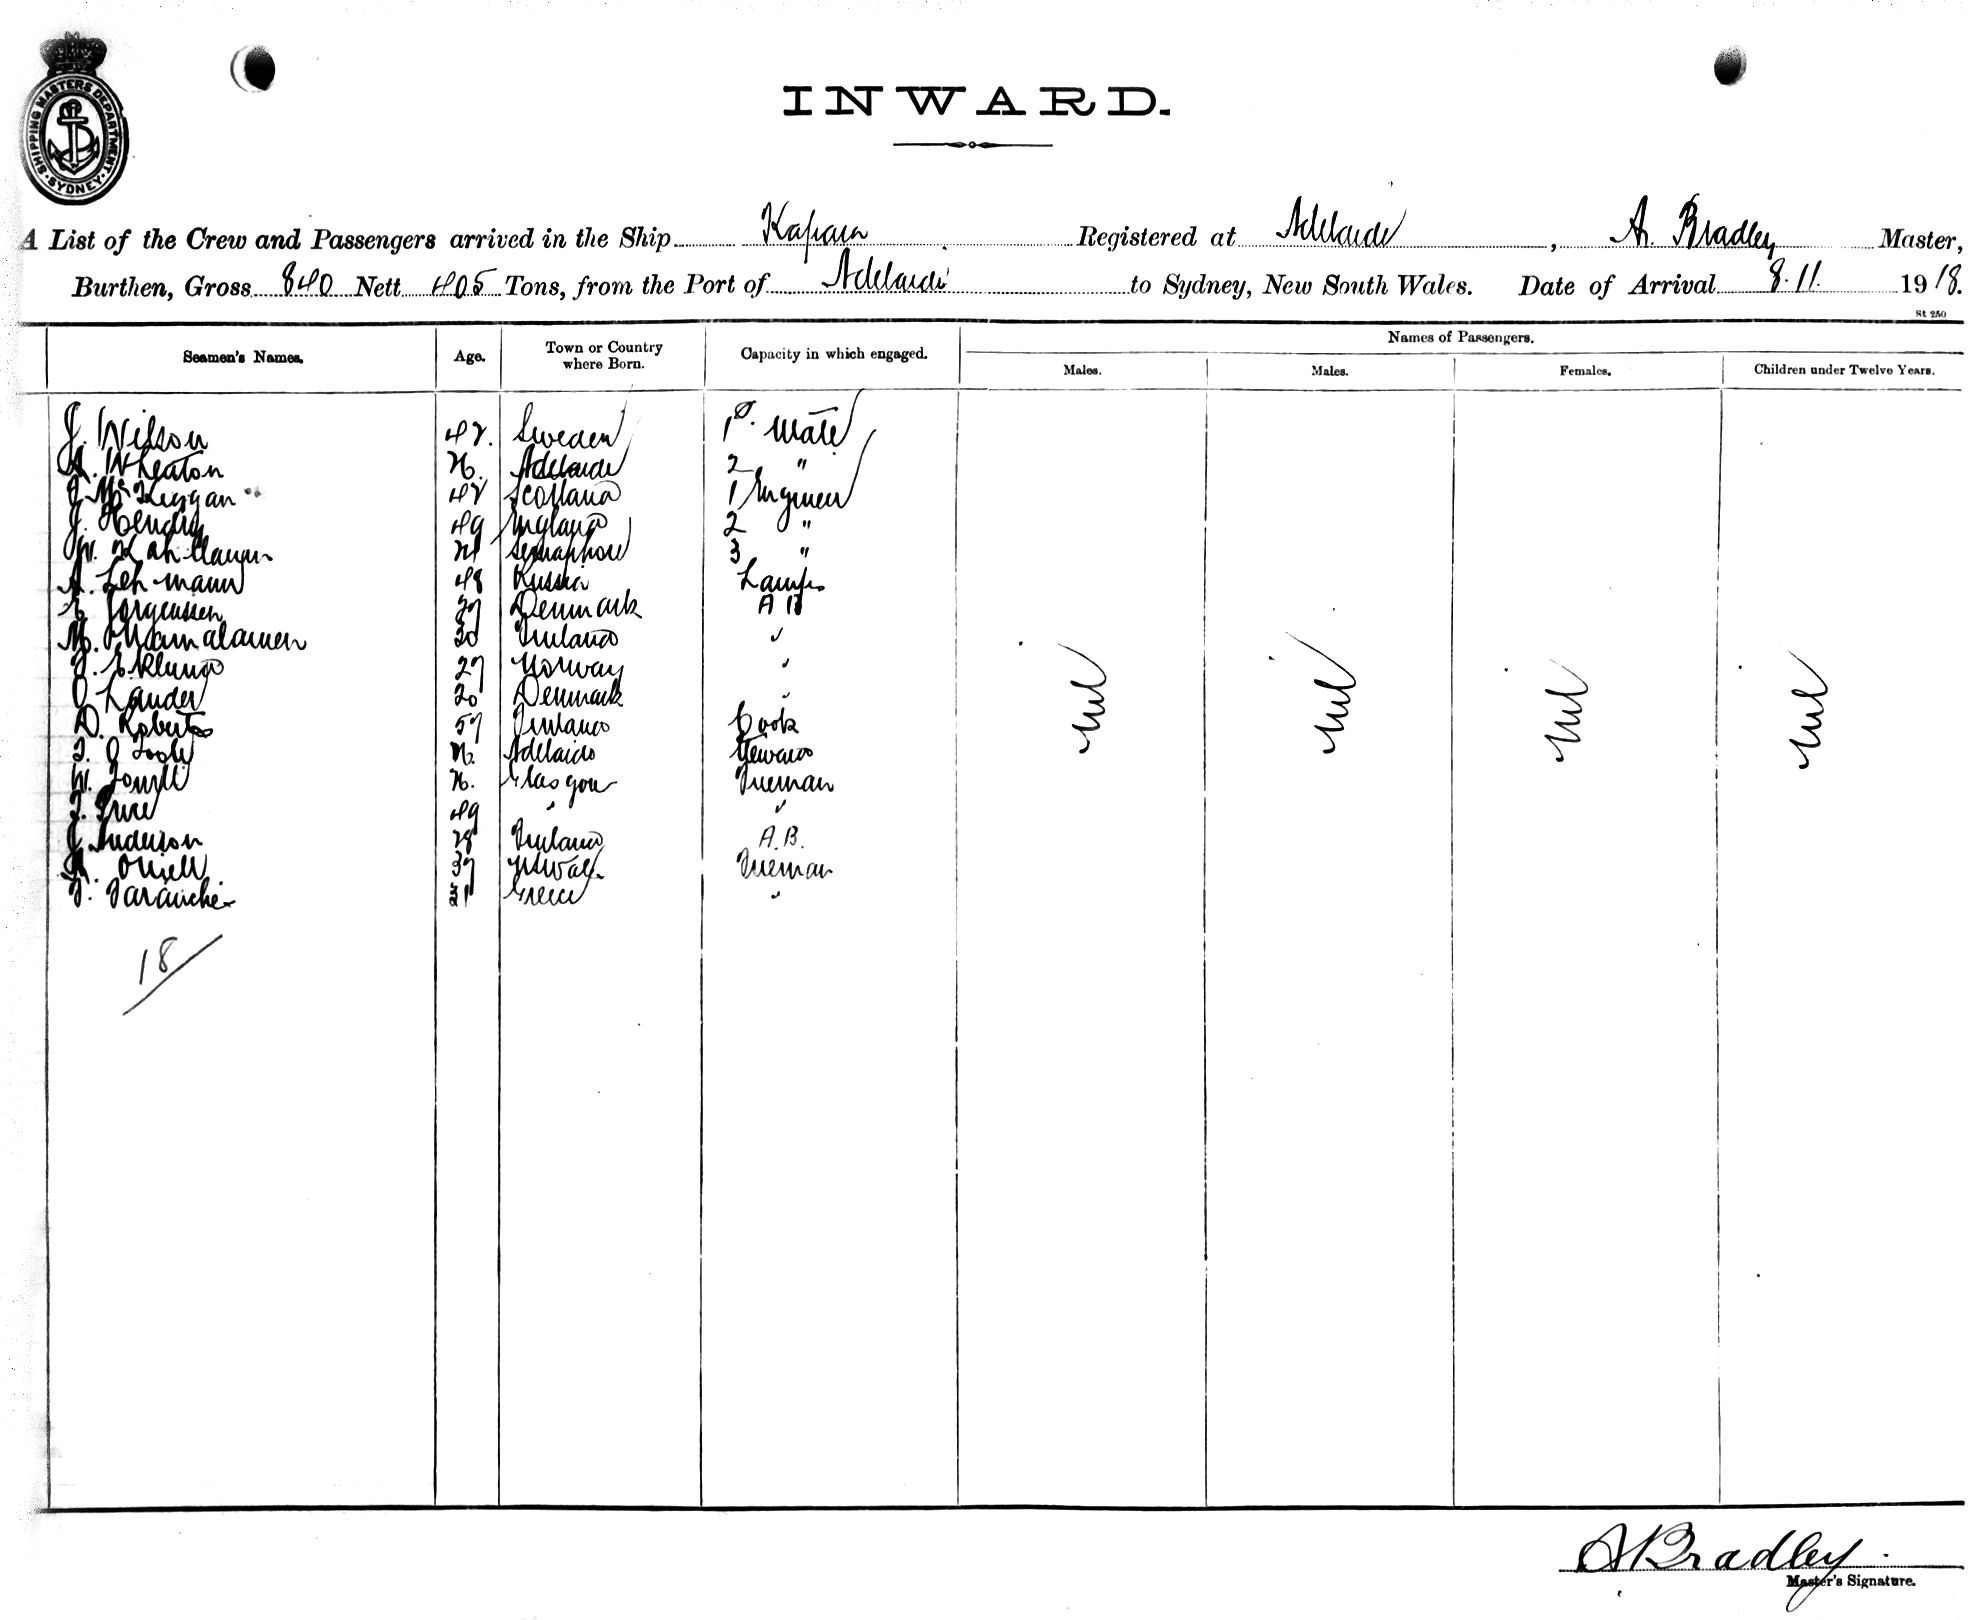 SHIPPING MASTERS DEPARTMENT. SYDNEY.
INWARD.
A List of the Crew and Passengers arrived in the Ship Kapara Registered at Adelaide, A. Bradley Master,
Burthen, Gross 840 Nett 405 Tons, from the Port of Adelaide to Sydney, New South Wales. Date of Arrival 8.11. 1918.
St 250
Seamen's Names. Age. Town or Country where Born. Capacity in which engaged. Names of Passengers.
Males. Males. Females. Children under Twelve Years.
J. Nilson 42. Sweden 1st Mate
A. Wheaton 26. Adelaide 2 "
J. 42 Scotland 1 Engineer
J. Hendry 49 England 2 "
W. 24 Semaphore 3 "
A. Lehmann 48 Russia Lamps
Jorgenssen 27 Denmark A B
30 Finland "
J. Eklund 27 Norway "
O Lander 20 Denmark "
D. Roberts 57 Finland Cook
J. O Toole 26. Adelaide Steward
W. 26. Glasgow Fireman
49 " "
J Anderson 28 Finland A.B.
37 NSWales Fireman
31 Greece "
nil nil nil nil
18
A Bradley.
Master's Signature.